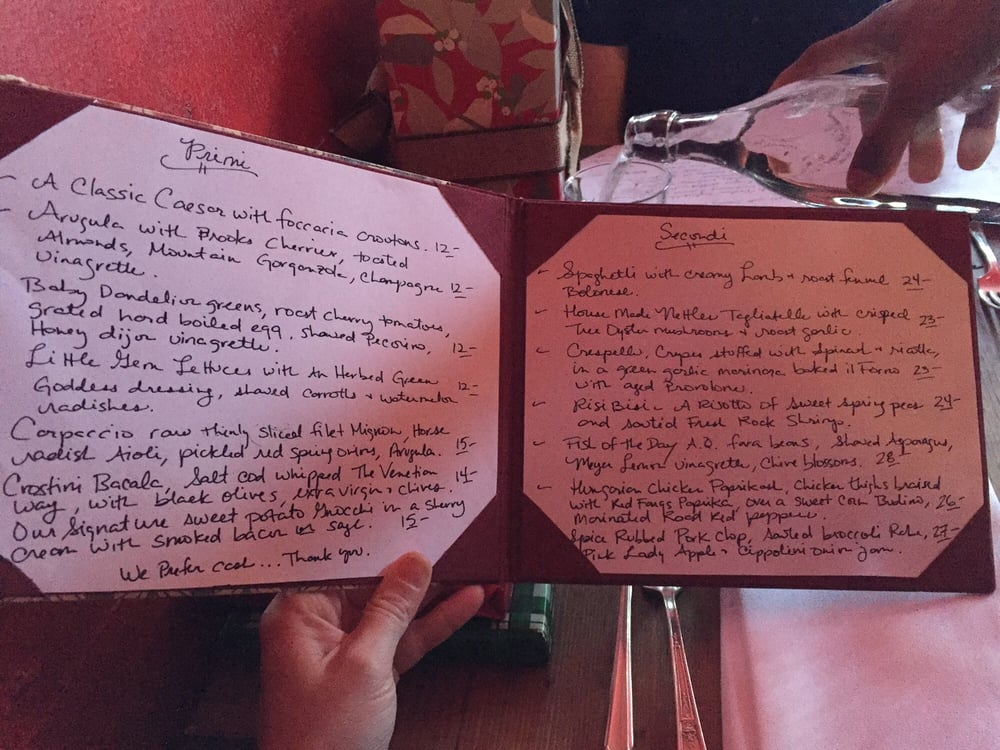 Primi
- A Classic Caesar with foccaria croutons. 12-
- Arugula with Brooks Cherries, toasted
Almonds, Mountain Gorgonzola, Champagne
Vinagrette. 12-
Baby Dandelion greens, roast cherry tomatoes,
grated hard boiled egg, shaved Pecorino,
Honey dijon vinagrette. 12-
Little Gem Lettuces with An Herbed Green
Goddess dressing, shaved carrotts + watermelon 12-
radishes.
Carpaccio raw thinly sliced filet Mignon, Horse
radish Aioli, pickled red spring onions, Arugula. 15-
Crostini Bacala, Salt cod whipped The Venetian
way, with black olives, extra virgin + chives. 14-
Our Signature sweet potato Gnocchi in a Sherry
cream with smoked bacon + sage. 15-
We Prefer cash... Thank you.
Secondi
- Spaghetti with creamy Lamb + roast fennel 24-
Bolonese.
- House Made Nettles Tagliatelle with crisped 23-
Tree Oyster mushrooms + roast garlic.
- Crespelle, Crepes stuffed with Spinach + ricotta,
in a green garlic marinara baked il Forno 23-
with aged Provolone.
- Risi Bisi - A Risotto of sweet spring peas 24-
and sautéd Fresh Rock Shrimp.
- Fish of the Day A.Q. fava beans, Shaved Asparagus,
Meyer Lemon vinagrette, Chive blossoms. 28-
- Hungarian Chicken Paprikash, Chicken thighs braised
with Red Fangs Paprika, over a sweet Corn Budino, 26-
Marinated Roast Red peppers.
Spice Rubbed Pork Chop, Sautéd broccoli Rabe, 27-
Pink Lady Apple + Cippolini onion jam.